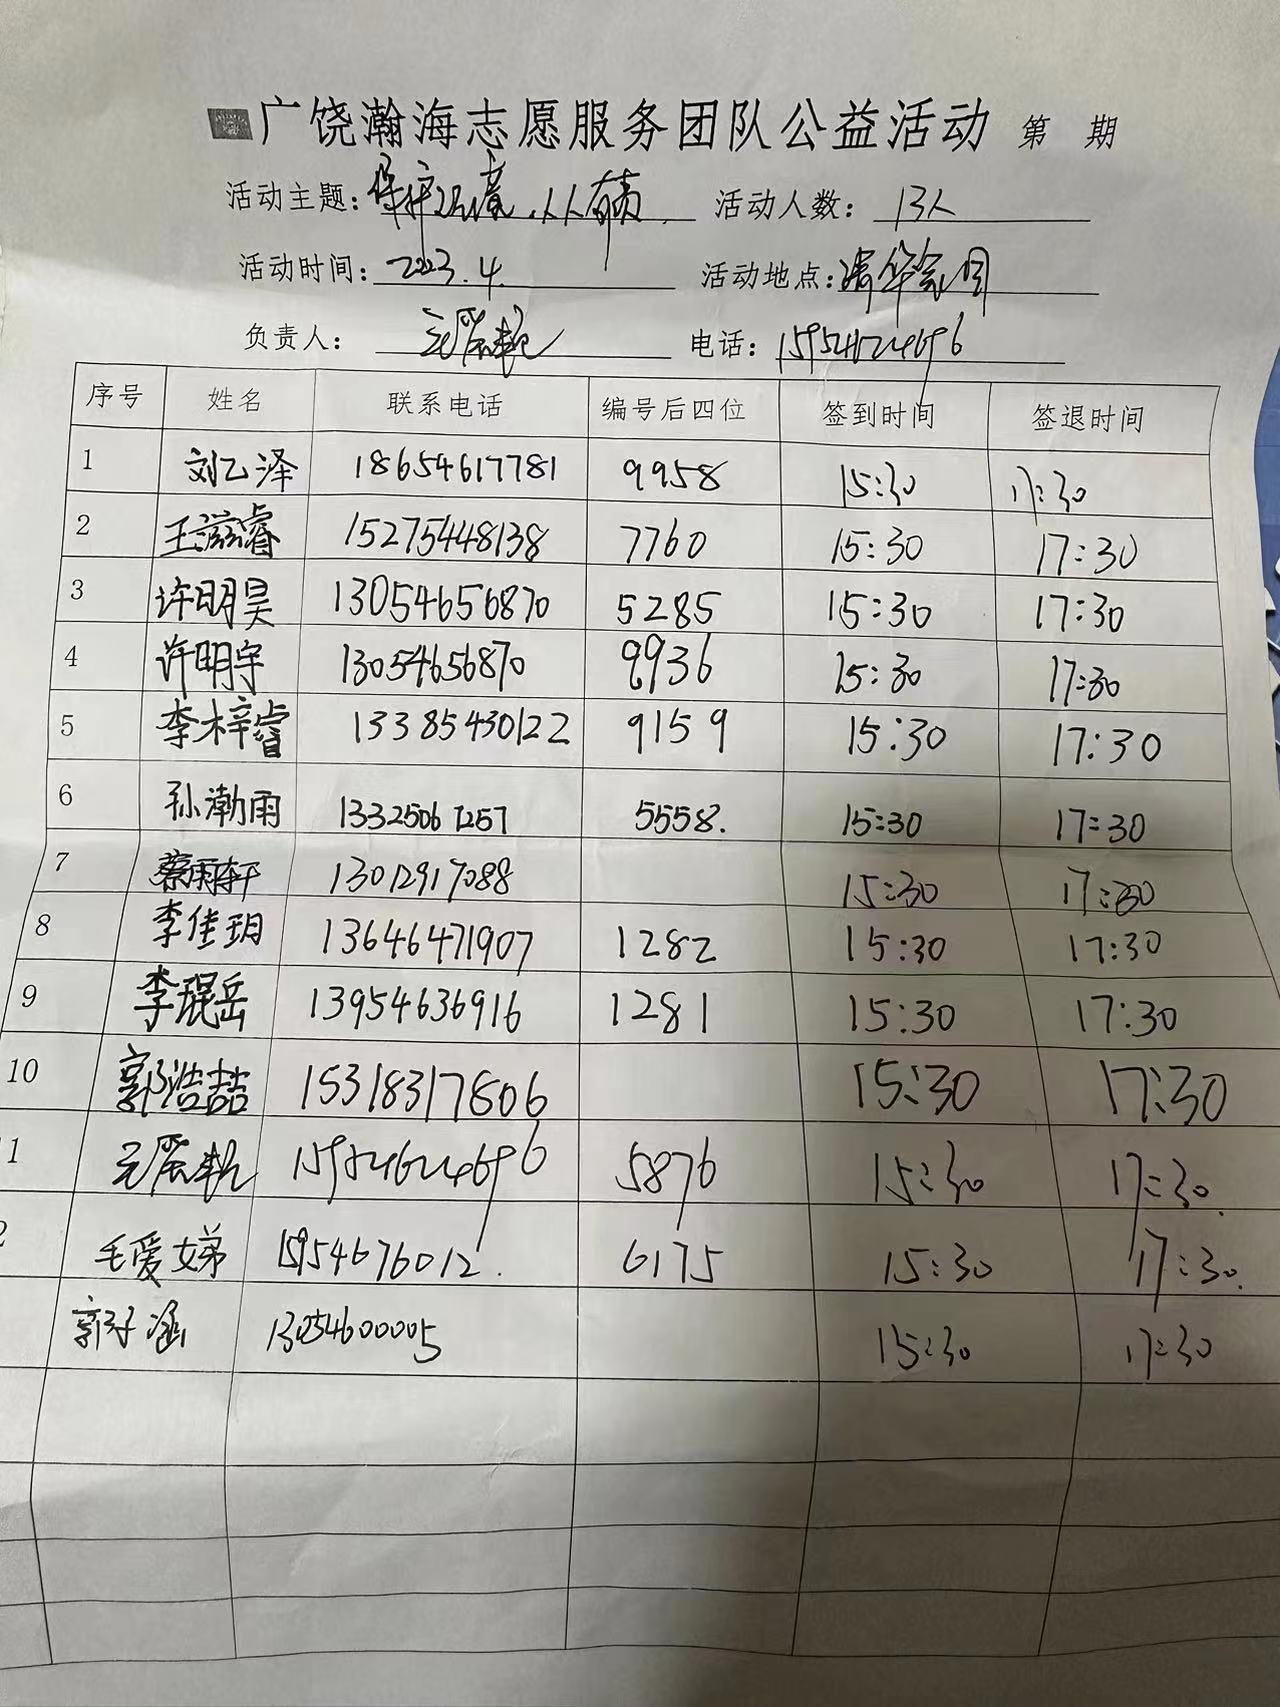 广饶瀚海志愿服务团队公益活动 第 期
活动主题：保护环境，人人有责. 活动人数：13人
活动时间：2023.4. 活动地点：清华家园
负责人： 电话：15954624696
序号 姓名 联系电话 编号后四位 签到时间 签退时间
1 刘乙泽 18654617781 9958 15:30 17:30
2 王滋睿 15275448138 7760 15:30 17:30
3 许明昊 13054656870 5285 15:30 17:30
4 许明宇 13054656870 9936 15:30 17:30
5 李梓睿 13385430122 9159 15:30 17:30
6 孙渤雨 13325061257 5558. 15:30 17:30
7 蔡雨轩 13012917088 15:30 17:30
8 李佳玥 13646471907 1282 15:30 17:30
9 李琨岳 13954636916 1281 15:30 17:30
10 郭浩喆 15318317806 15:30 17:30
1 15954624696 5876 15:30 17:30.
2 毛爱娣 15954676012. 6175 15:30 17:30.
郭子涵 13054600005 15:30 17:30